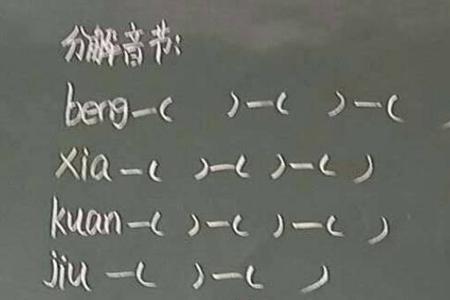 分解音节:
beng-( )-( )-(
xia-( )-( )-( )
kuan-( )-( )-( )
jiu-( )-( )